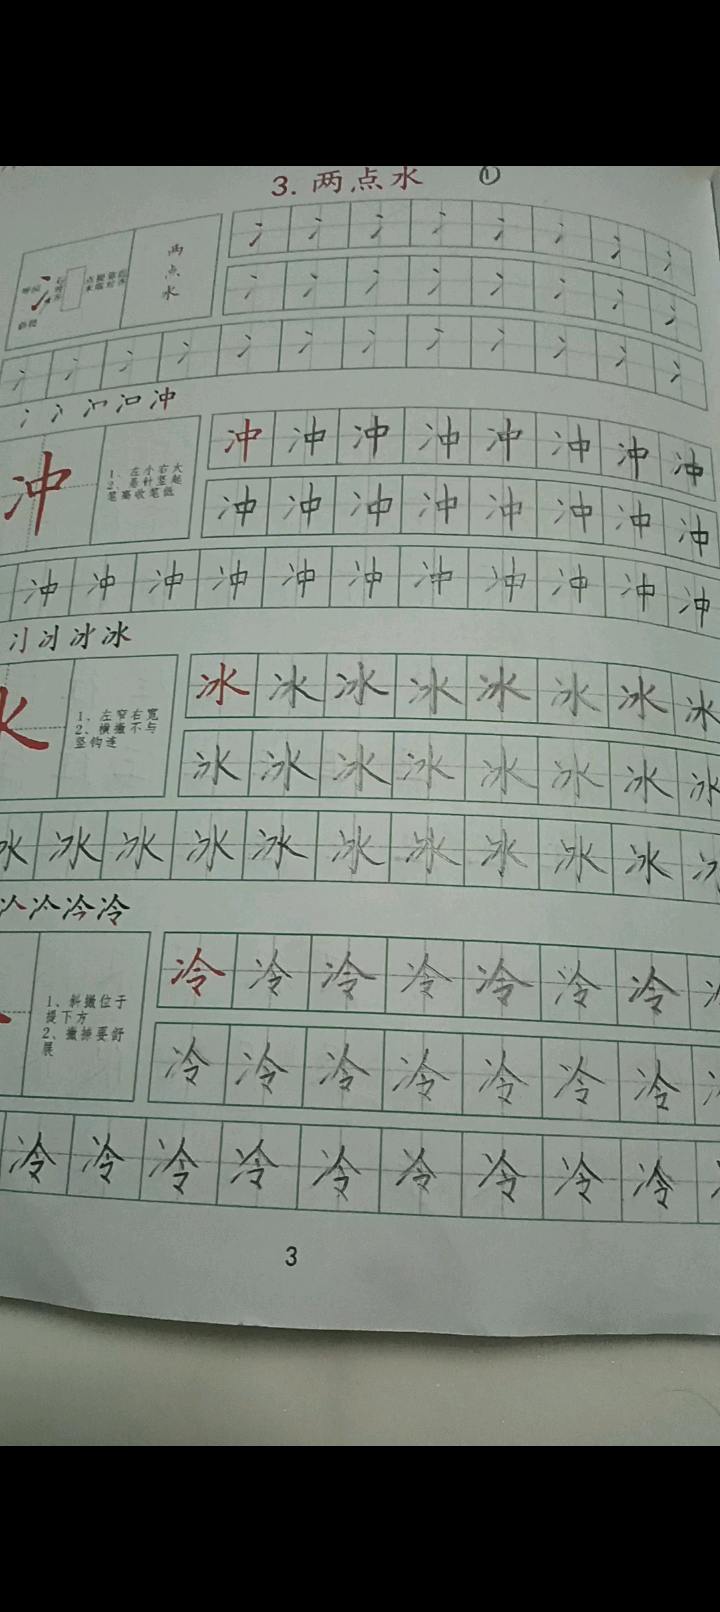 3. 两点水 ①
两点水
冫 冫 冫 冫 冫 冫 冫 冫
冫 冫 冫 冫 冫 冫 冫 冫
冫 冫 冫 冫 冫 冫 冫 冫 冫 冫 冫 冫
冲
冲
1、左小右大
2、悬针竖起
笔高收笔低
冲 冲 冲 冲 冲 冲 冲 冲
冲 冲 冲 冲 冲 冲 冲 冲
冲 冲 冲 冲 冲 冲 冲 冲 冲 冲 冲
冰
1、左窄右宽
2、横撇不与
竖钩连
冰 冰 冰 冰 冰 冰 冰 冰
冰 冰 冰 冰 冰 冰 冰 冰
冰 冰 冰 冰 冰 冰 冰 冰 冰 冰
冷
1、斜撇位于
提下方
2、撇捺要舒
展
冷 冷 冷 冷 冷 冷 冷
冷 冷 冷 冷 冷 冷 冷
冷 冷 冷 冷 冷 冷 冷 冷 冷
3